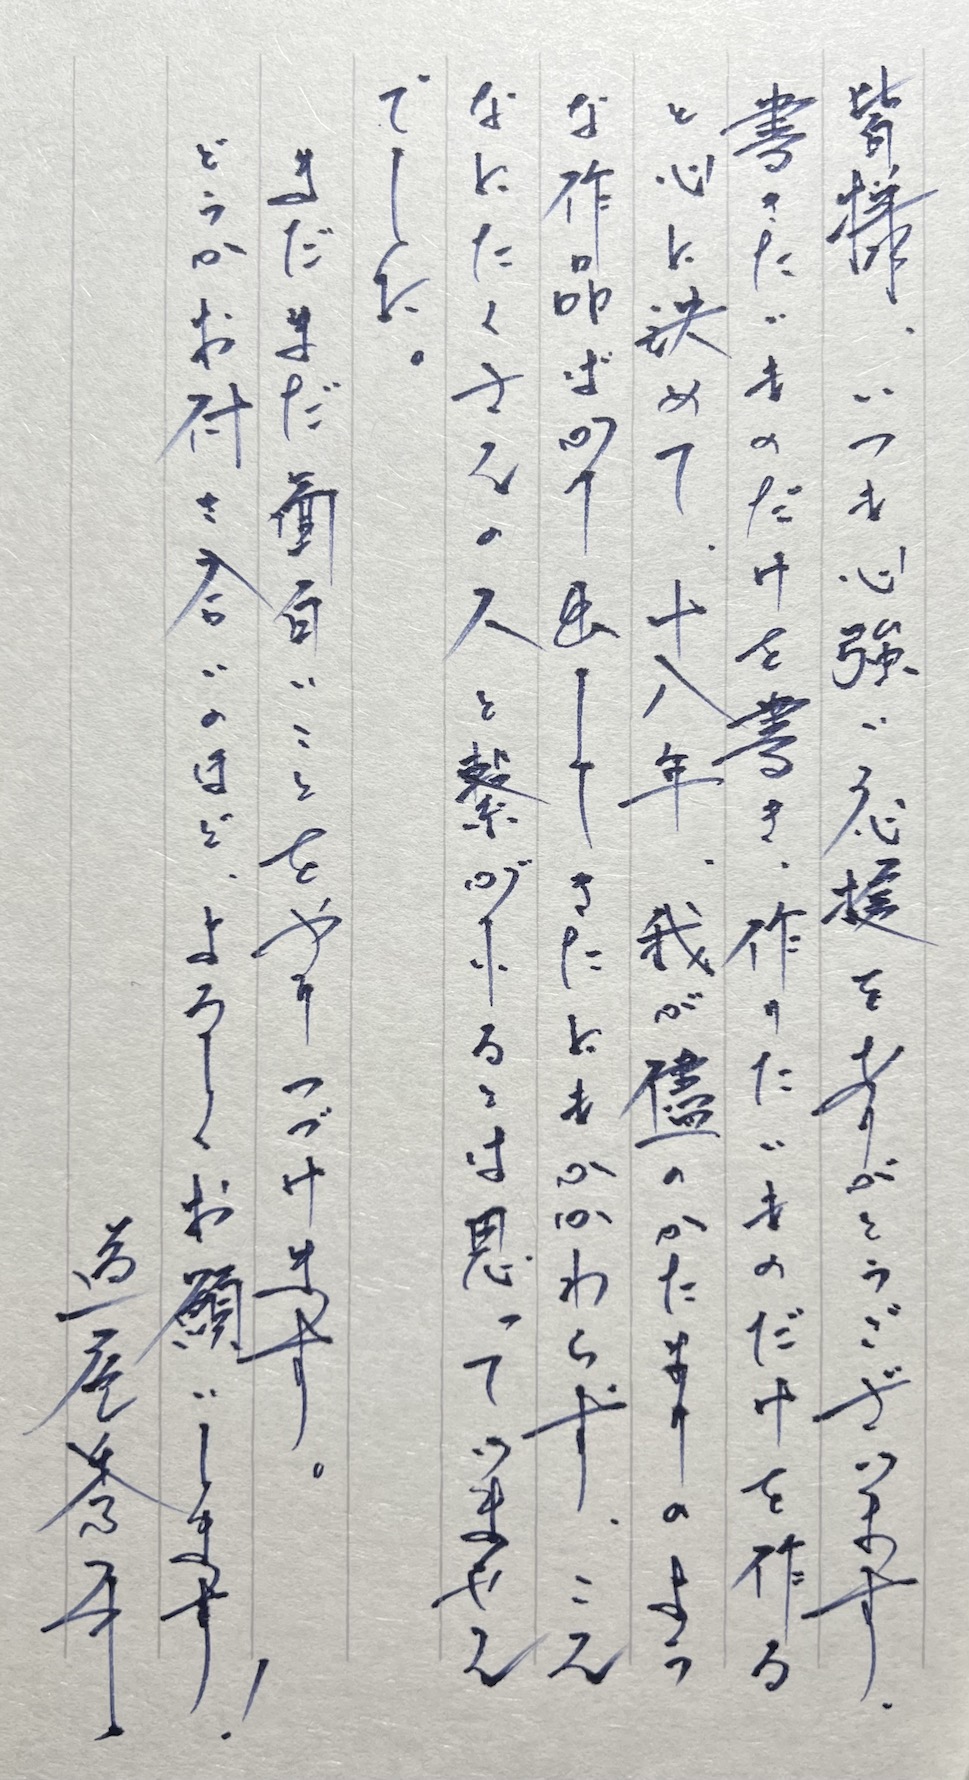 皆様、いつも心強い応援をありがとうございます。
書きたいものだけを書き、作りたいものだけを作る
と心に決めて、十八年、我が儘のかたまりのよう
な作品ばかり出してきたにもかかわらず、こん
なにたくさんの人と繋がれるとは思っていません
でした。
まだまだ面白いことをやりつづけます。
どうかお付き合いのほど、よろしくお願いします!